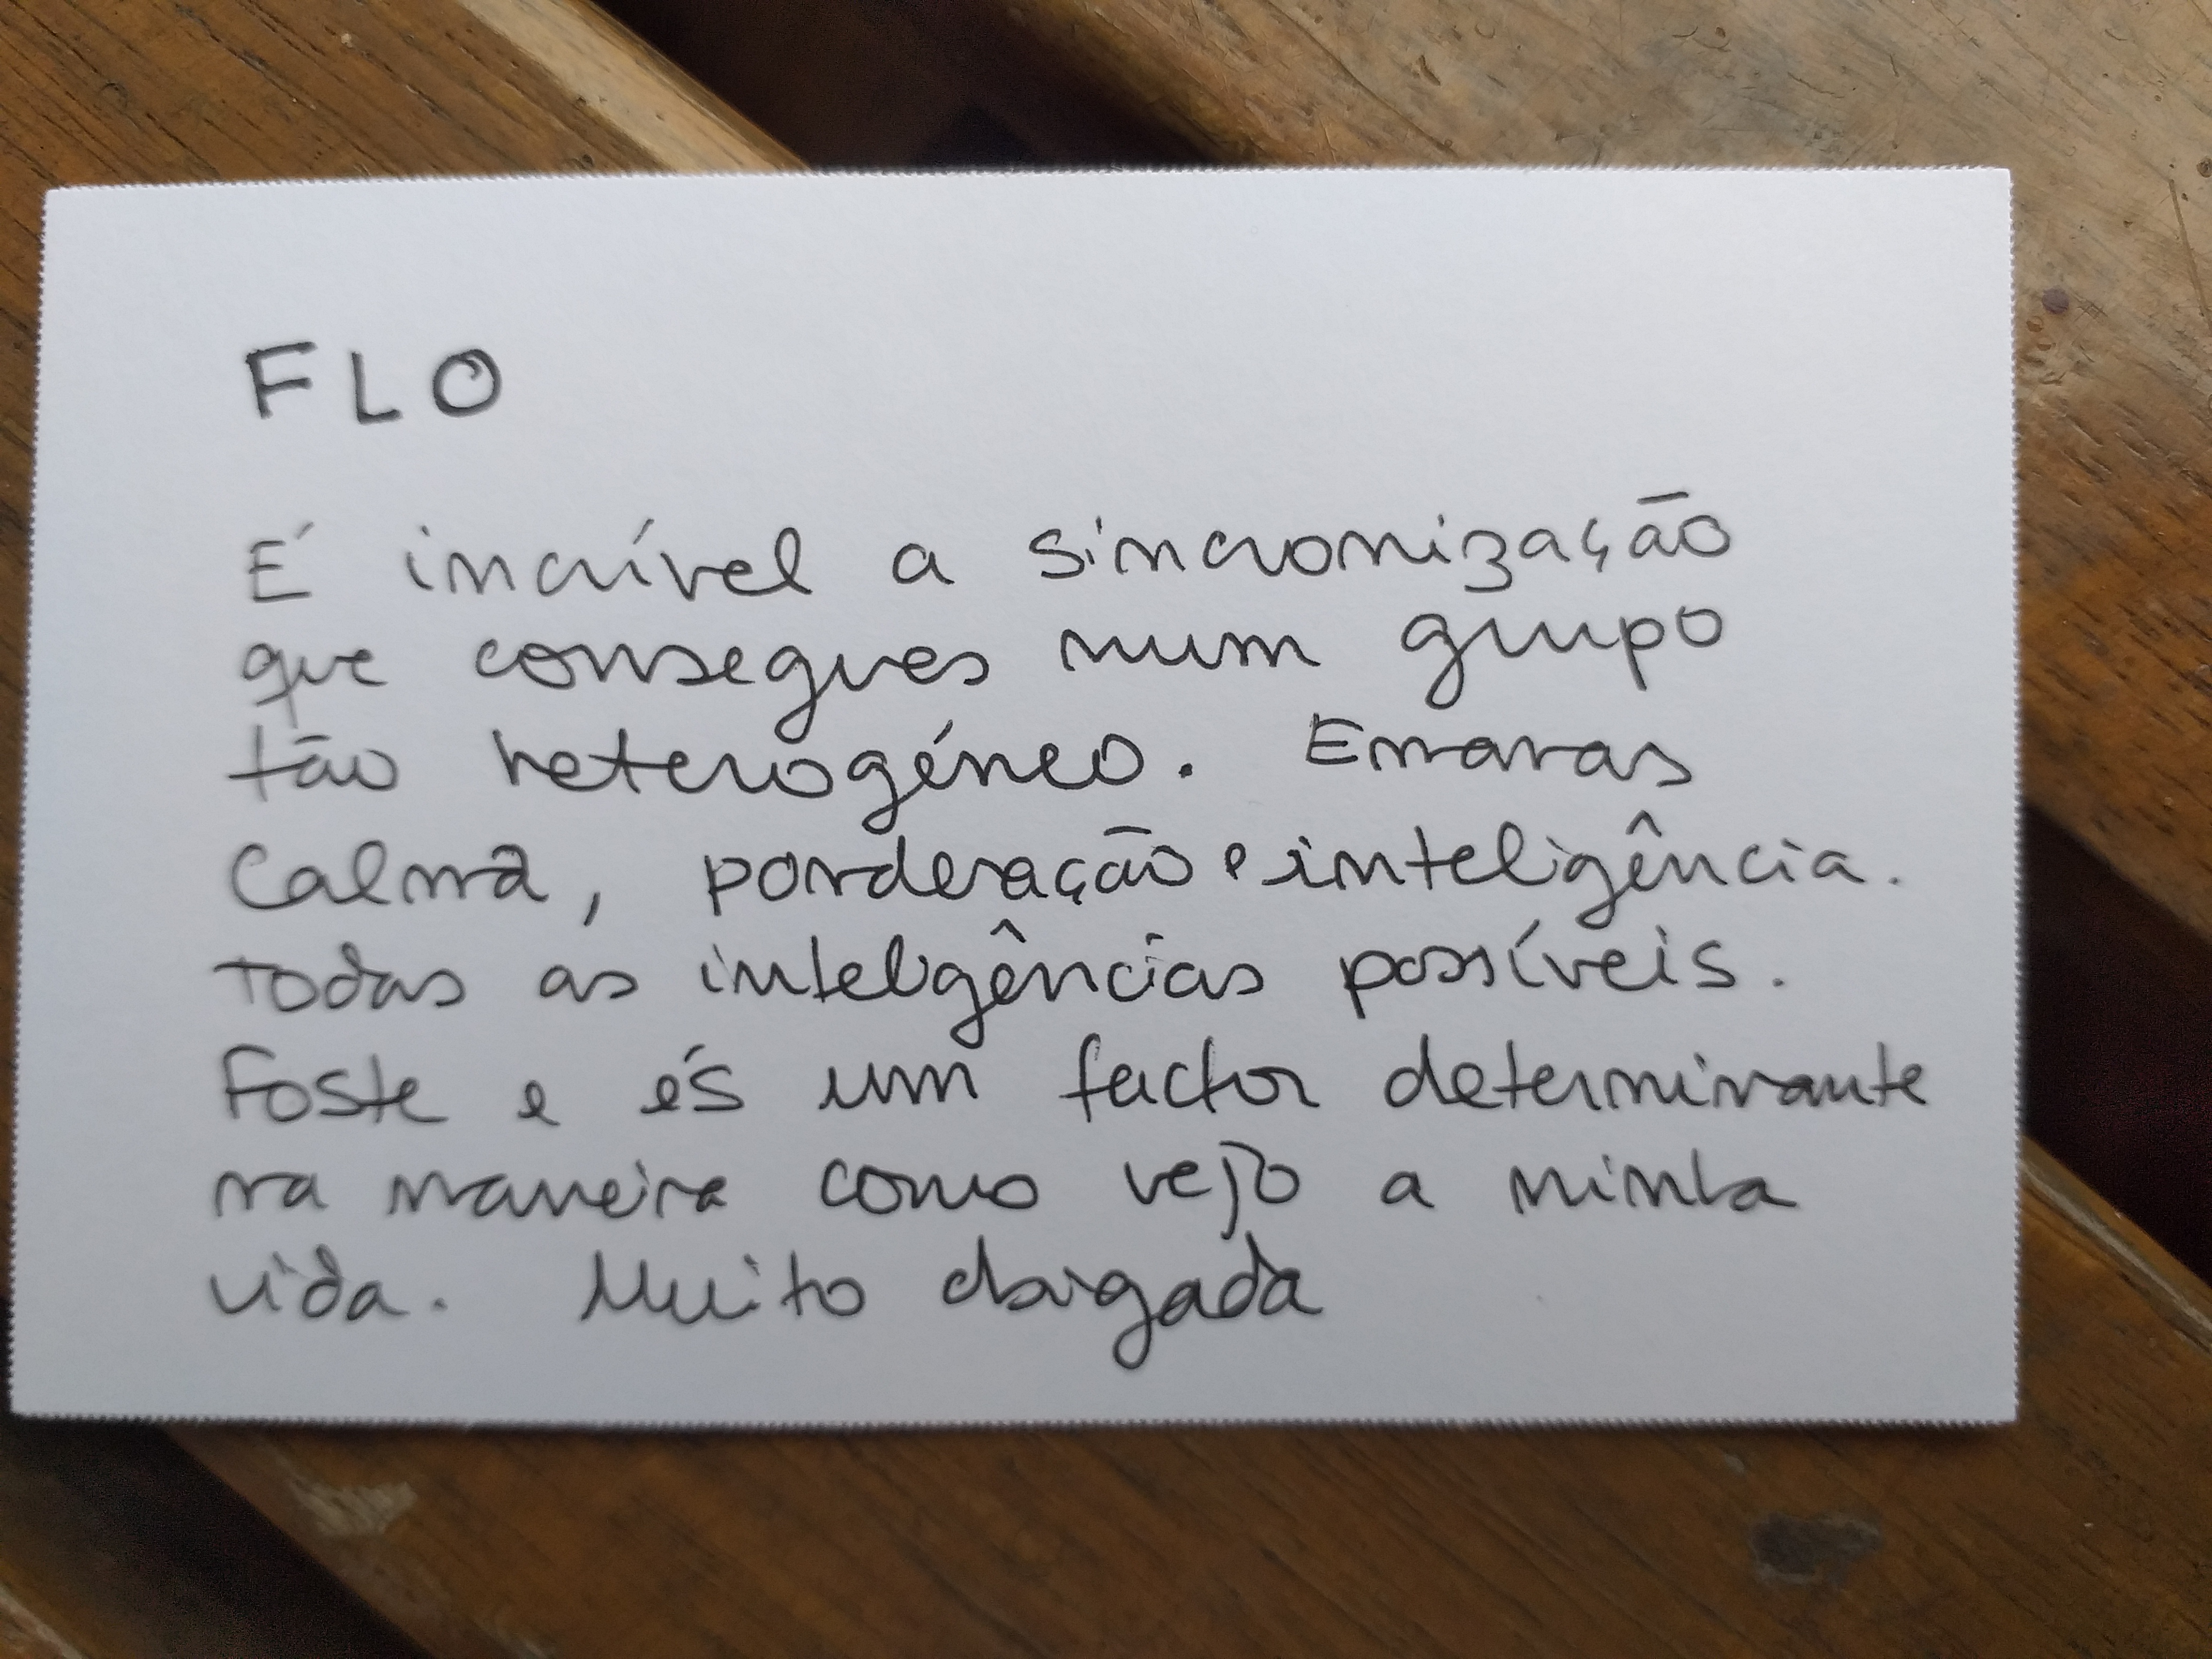 FLO
É incrível a sincronização
que consegues num grupo
tão heterogéneo. Emanas
Calma, ponderação e inteligência.
Todas as inteligências possíveis.
Foste e és um factor determinante
na maneira como vejo a minha
vida. Muito obrigada